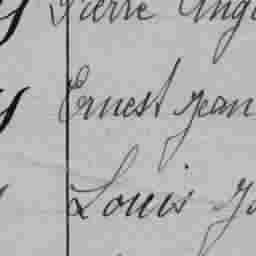 Pierre Ange
Ernest Jean
Louis